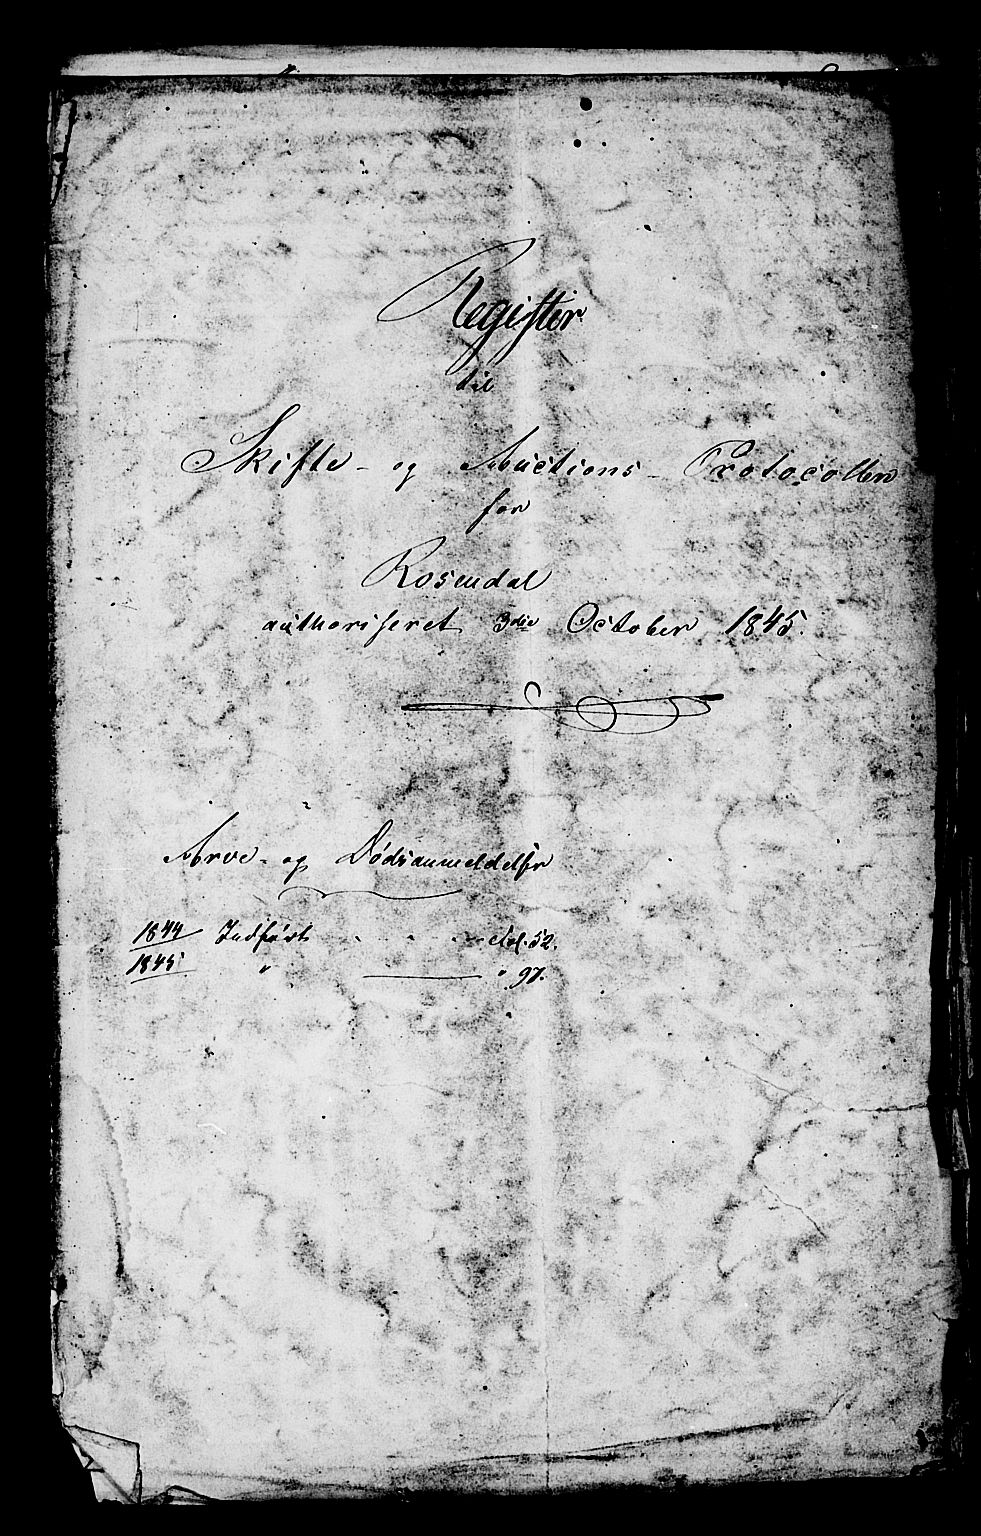 Register
til
Skifte- og Auctions-Protocollen
for
Rosendal
authoriseret 3die October 1845.
Arve- og Dødsanmeldelser
1844 Indført . . . . Fol. 52.
1845 " — " 97.